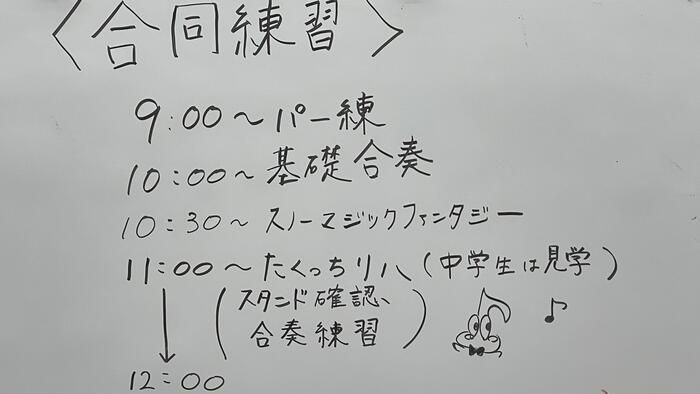 〈合同練習〉
9:00〜パー練
10:00〜基礎合奏
10:30〜スノーマジックファンタジー
11:00〜たくっちリハ(中学生は見学)
(スタンド確認、
合奏練習)
12:00